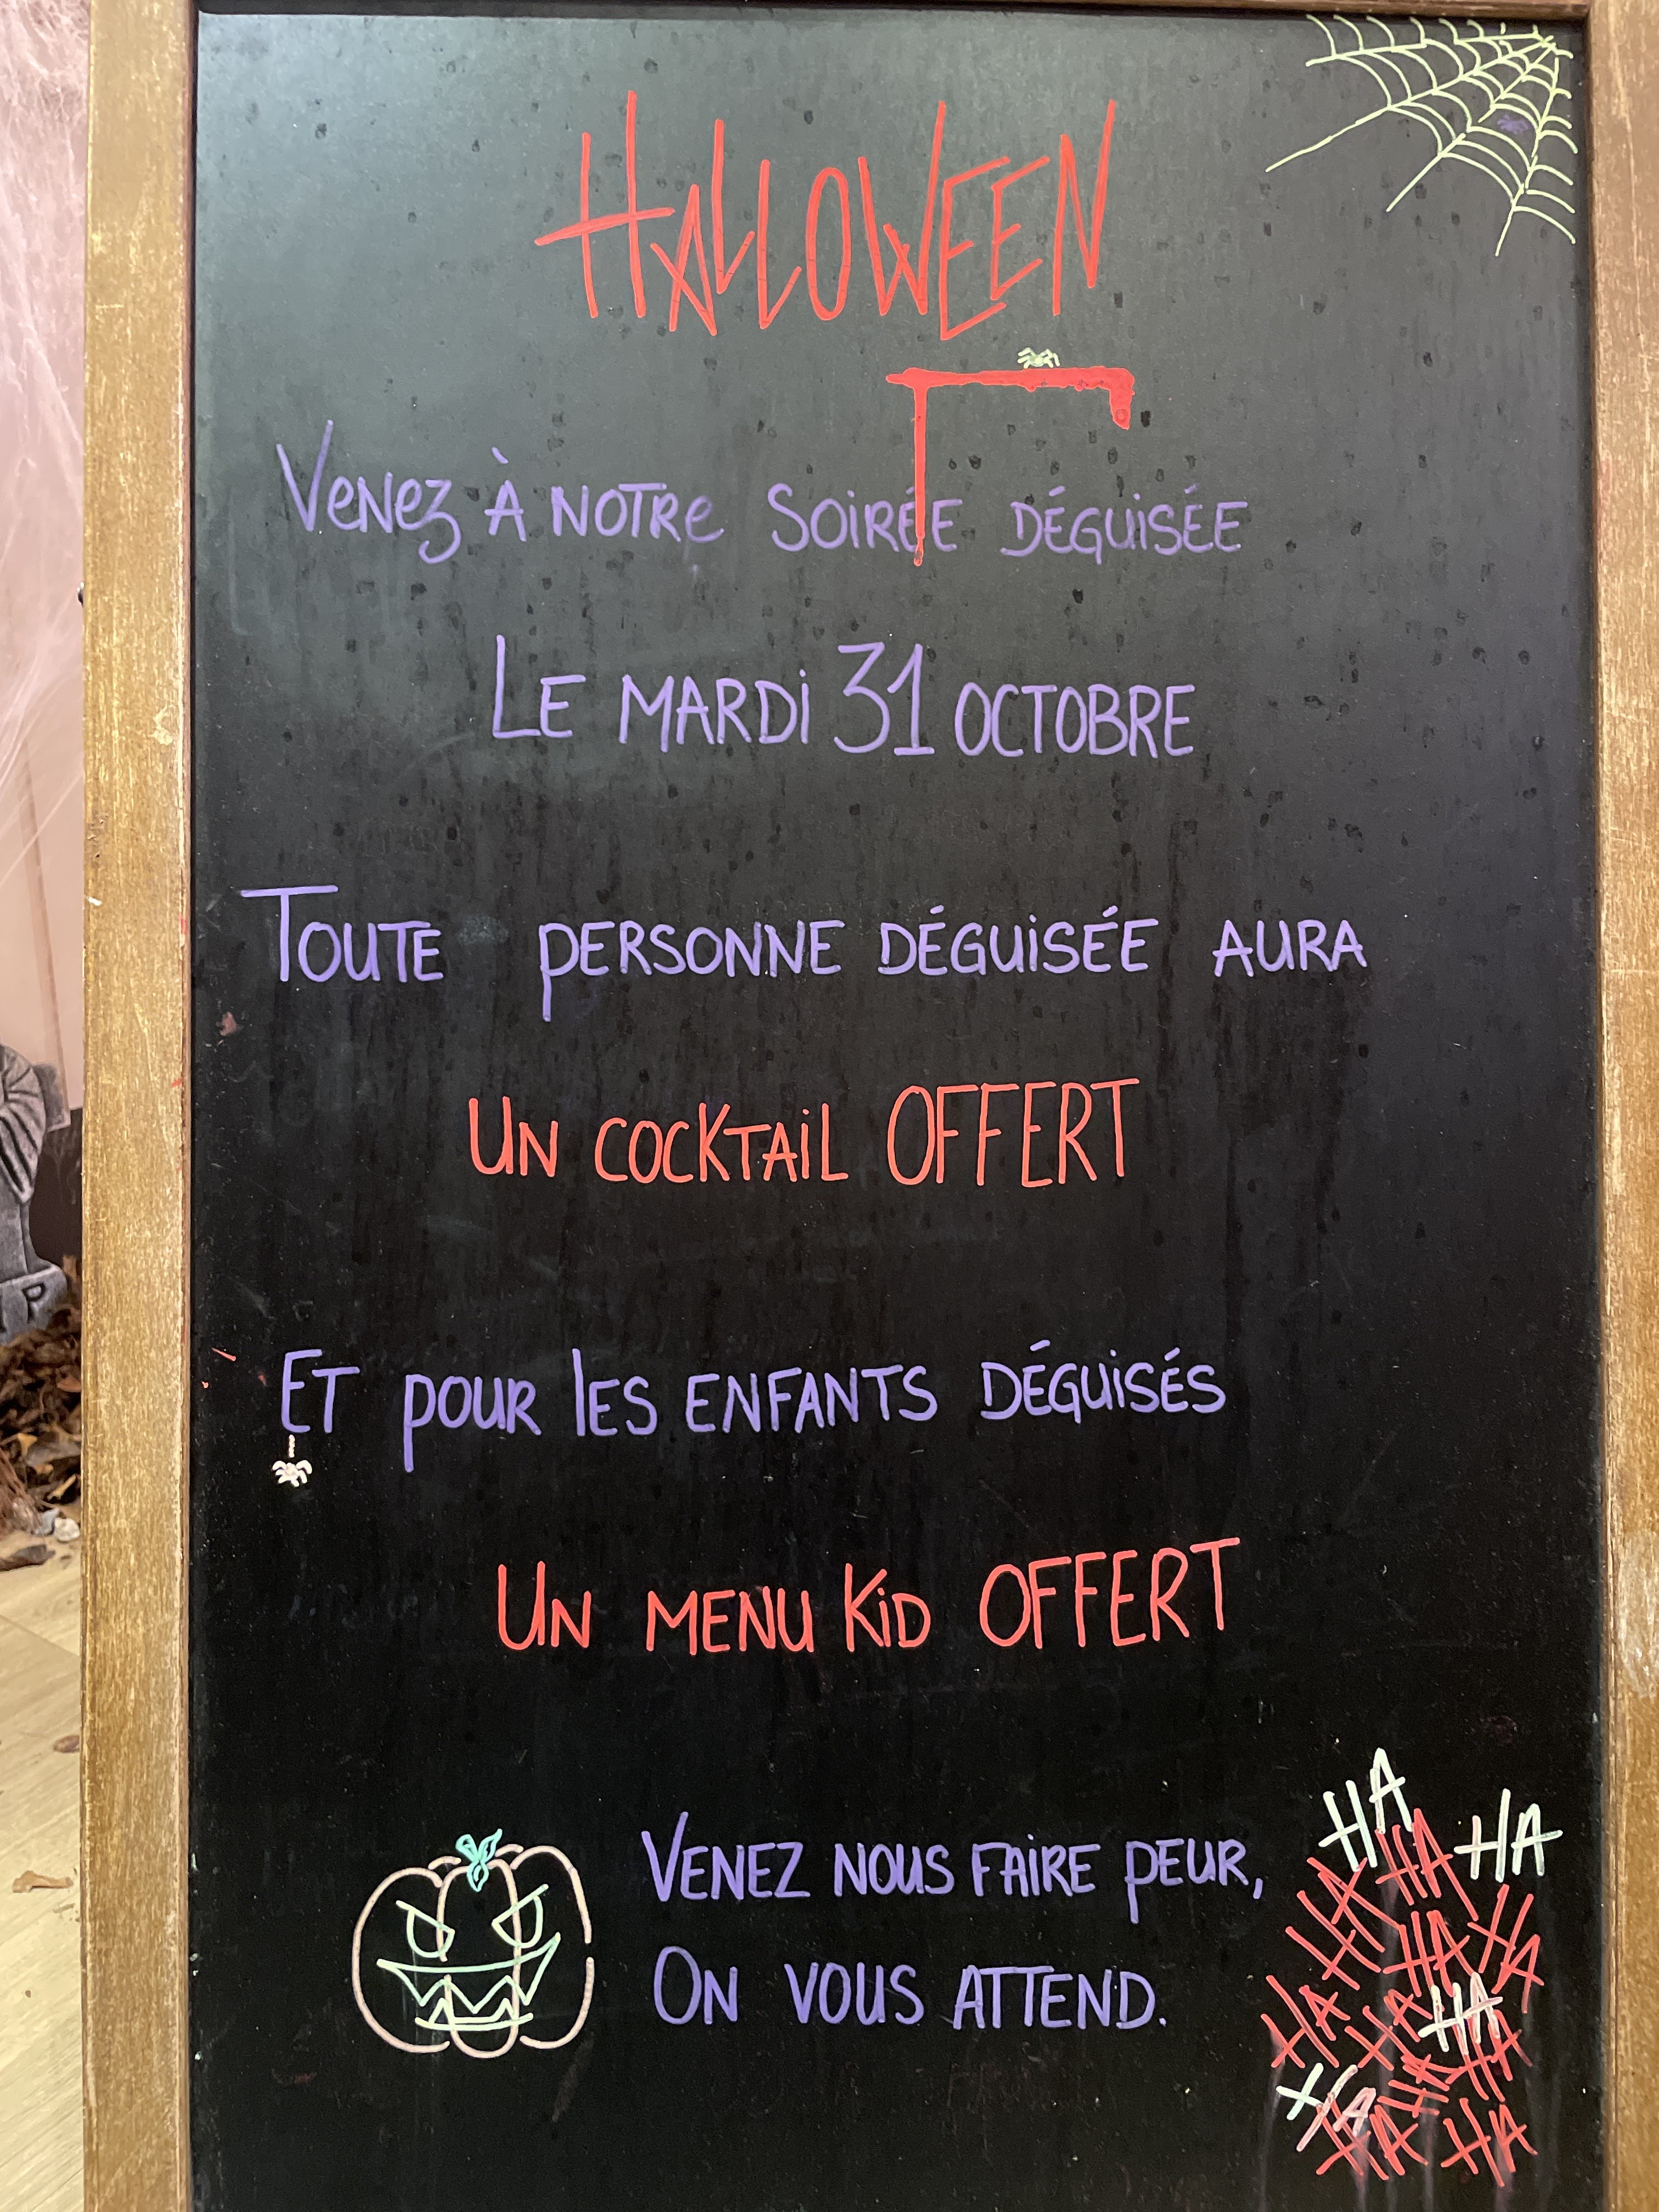 HALLOWEEN
VENEZ À NOTRE SOIRÉE DÉGUISÉE
LE MARDI 31 OCTOBRE
TOUTE PERSONNE DÉGUISÉE AURA
UN COCKTAIL OFFERT
ET POUR LES ENFANTS DÉGUISÉS
UN MENU KID OFFERT
VENEZ NOUS FAIRE PEUR,
ON VOUS ATTEND.
HA
HA
HA
HA
HA
HA
HA
HA
HA
HA
HA
HA
HA
HA
P